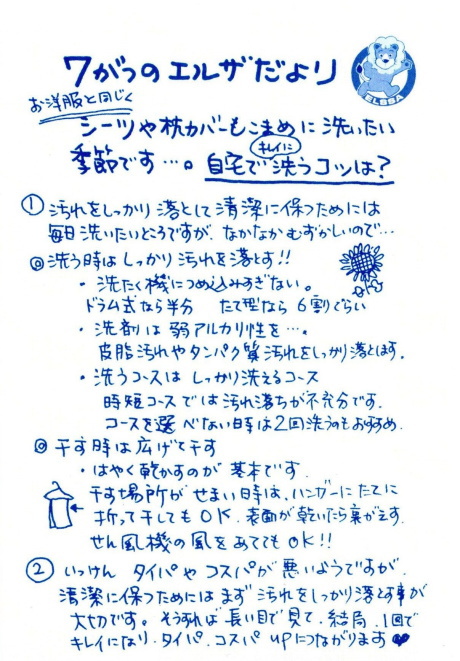 7がつのエルザだより
ELSSA
お洋服と同じく
シーツや枕カバーもこまめに洗いたい
キレイに
季節です…。自宅で洗うコツは?
① 汚れをしっかり落として清潔に保つためには
毎日洗いたいところですが、なかなかむずかしいので…
◎洗う時はしっかり汚れを落とす!!
・洗たく機につめ込みすぎない。
ドラム式なら半分 たて型なら6割ぐらい
・洗剤は弱アルカリ性を…。
皮脂汚れやタンパク質汚れをしっかり落とします.
・洗うコースはしっかり洗えるコース
時短コースでは汚れ落ちが不充分です.
コースを選べない時は2回洗うのもおすすめ.
◎干す時は広げて干す
・はやく乾かすのが基本です.
干す場所がせまい時は、ハンガーにたてに
折って干してもOK.表面が乾いたら裏がえす.
せん風機の風をあててもOK!!
② いっけんタイパやコスパが悪いようですが、
清潔に保つためにはまず汚れをしっかり落とす事が
大切です。そうすれば長い目で見て、結局、1回で
キレイになり、タイパ、コスパupにつながります♥